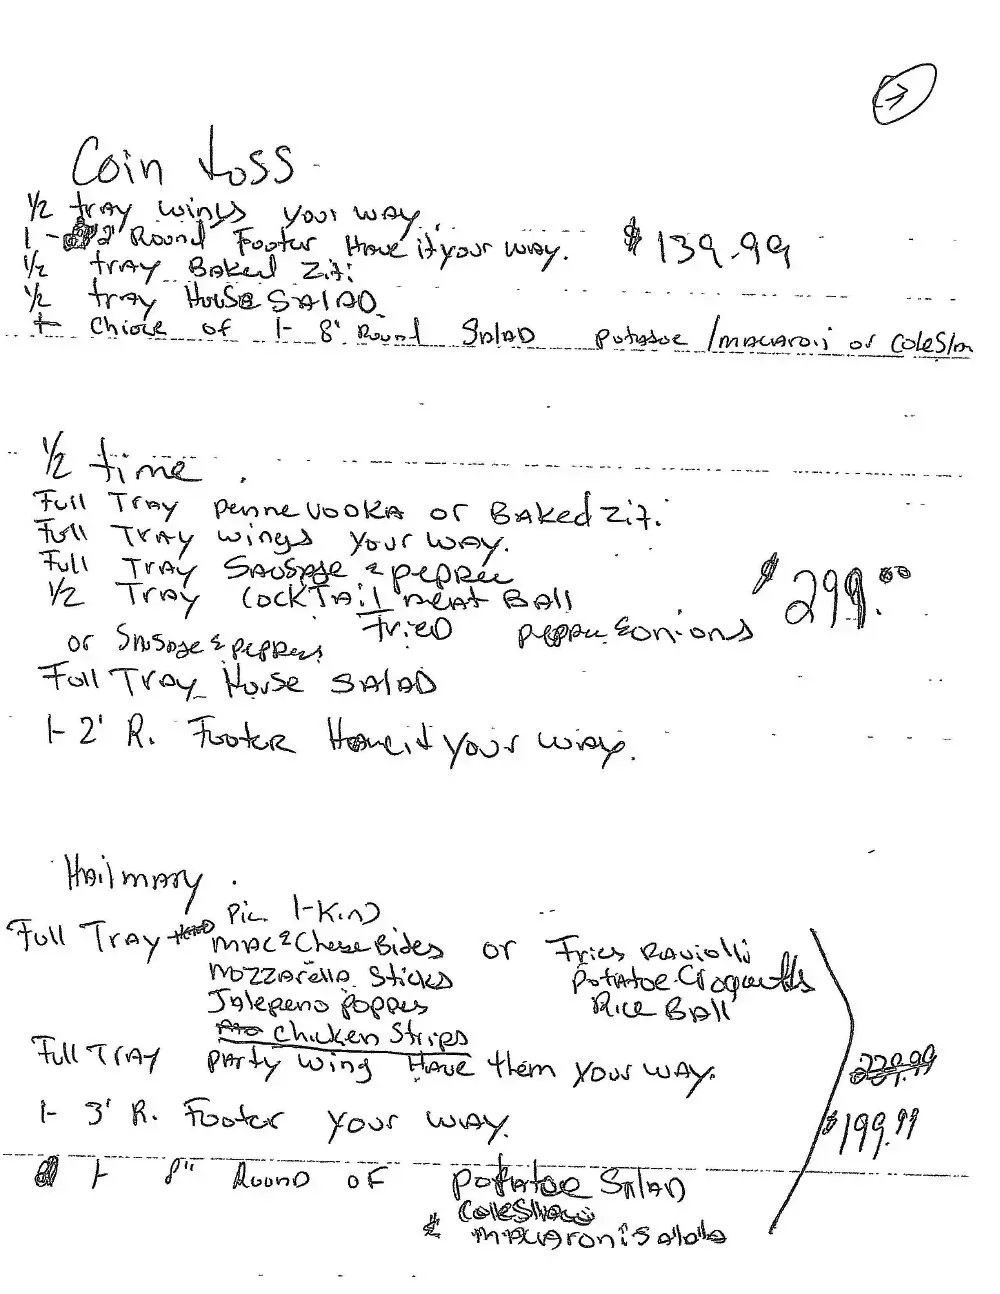 Coin toss
1/2 tray wings your way.
1 - 2' Round Footer Have it your way. $139.99
1/2 tray Baked Ziti
1/2 tray House SALAD
+ Chioce of 1- 8" Round SALAD potatoe /macaroni or Coleslaw
1/2 time
Full Tray penne vodka or Baked Ziti
Full Tray wings your way.
Full Tray Sausage & pepper
1/2 Tray Cocktail meat Ball $299.00
or Sausage & peppers Fried pepper & onions
Full Tray House SALAD
1- 2' R. Footer Have it your way.
Hail mary
Pic. 1-Kind
Full Tray mac & Chese Bides or Fries Raviolli
Mozzarella Sticks Potatoe Croquetts
Jalepeno poppes Rice Ball
chicken Strips
Full Tray party wing Have them your way. 229.99
1- 3' R. Footer your way. $199.99
1 8" Round of potatoe Salad
Coleslaw
& macaroni Salad